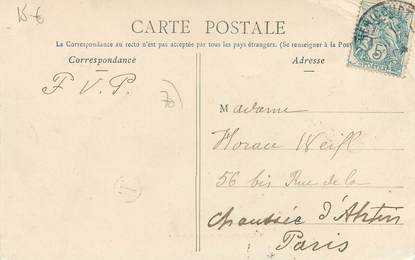 15 €
CARTE POSTALE
La Correspondance au recto n'est pas acceptée par tous les pays étrangers. (Se renseigner à la Poste
Correspondance
Adresse
F. V. P.
5
Madame
Horace Weill
56 bis Rue de la
Chaussée d'Antin
Paris